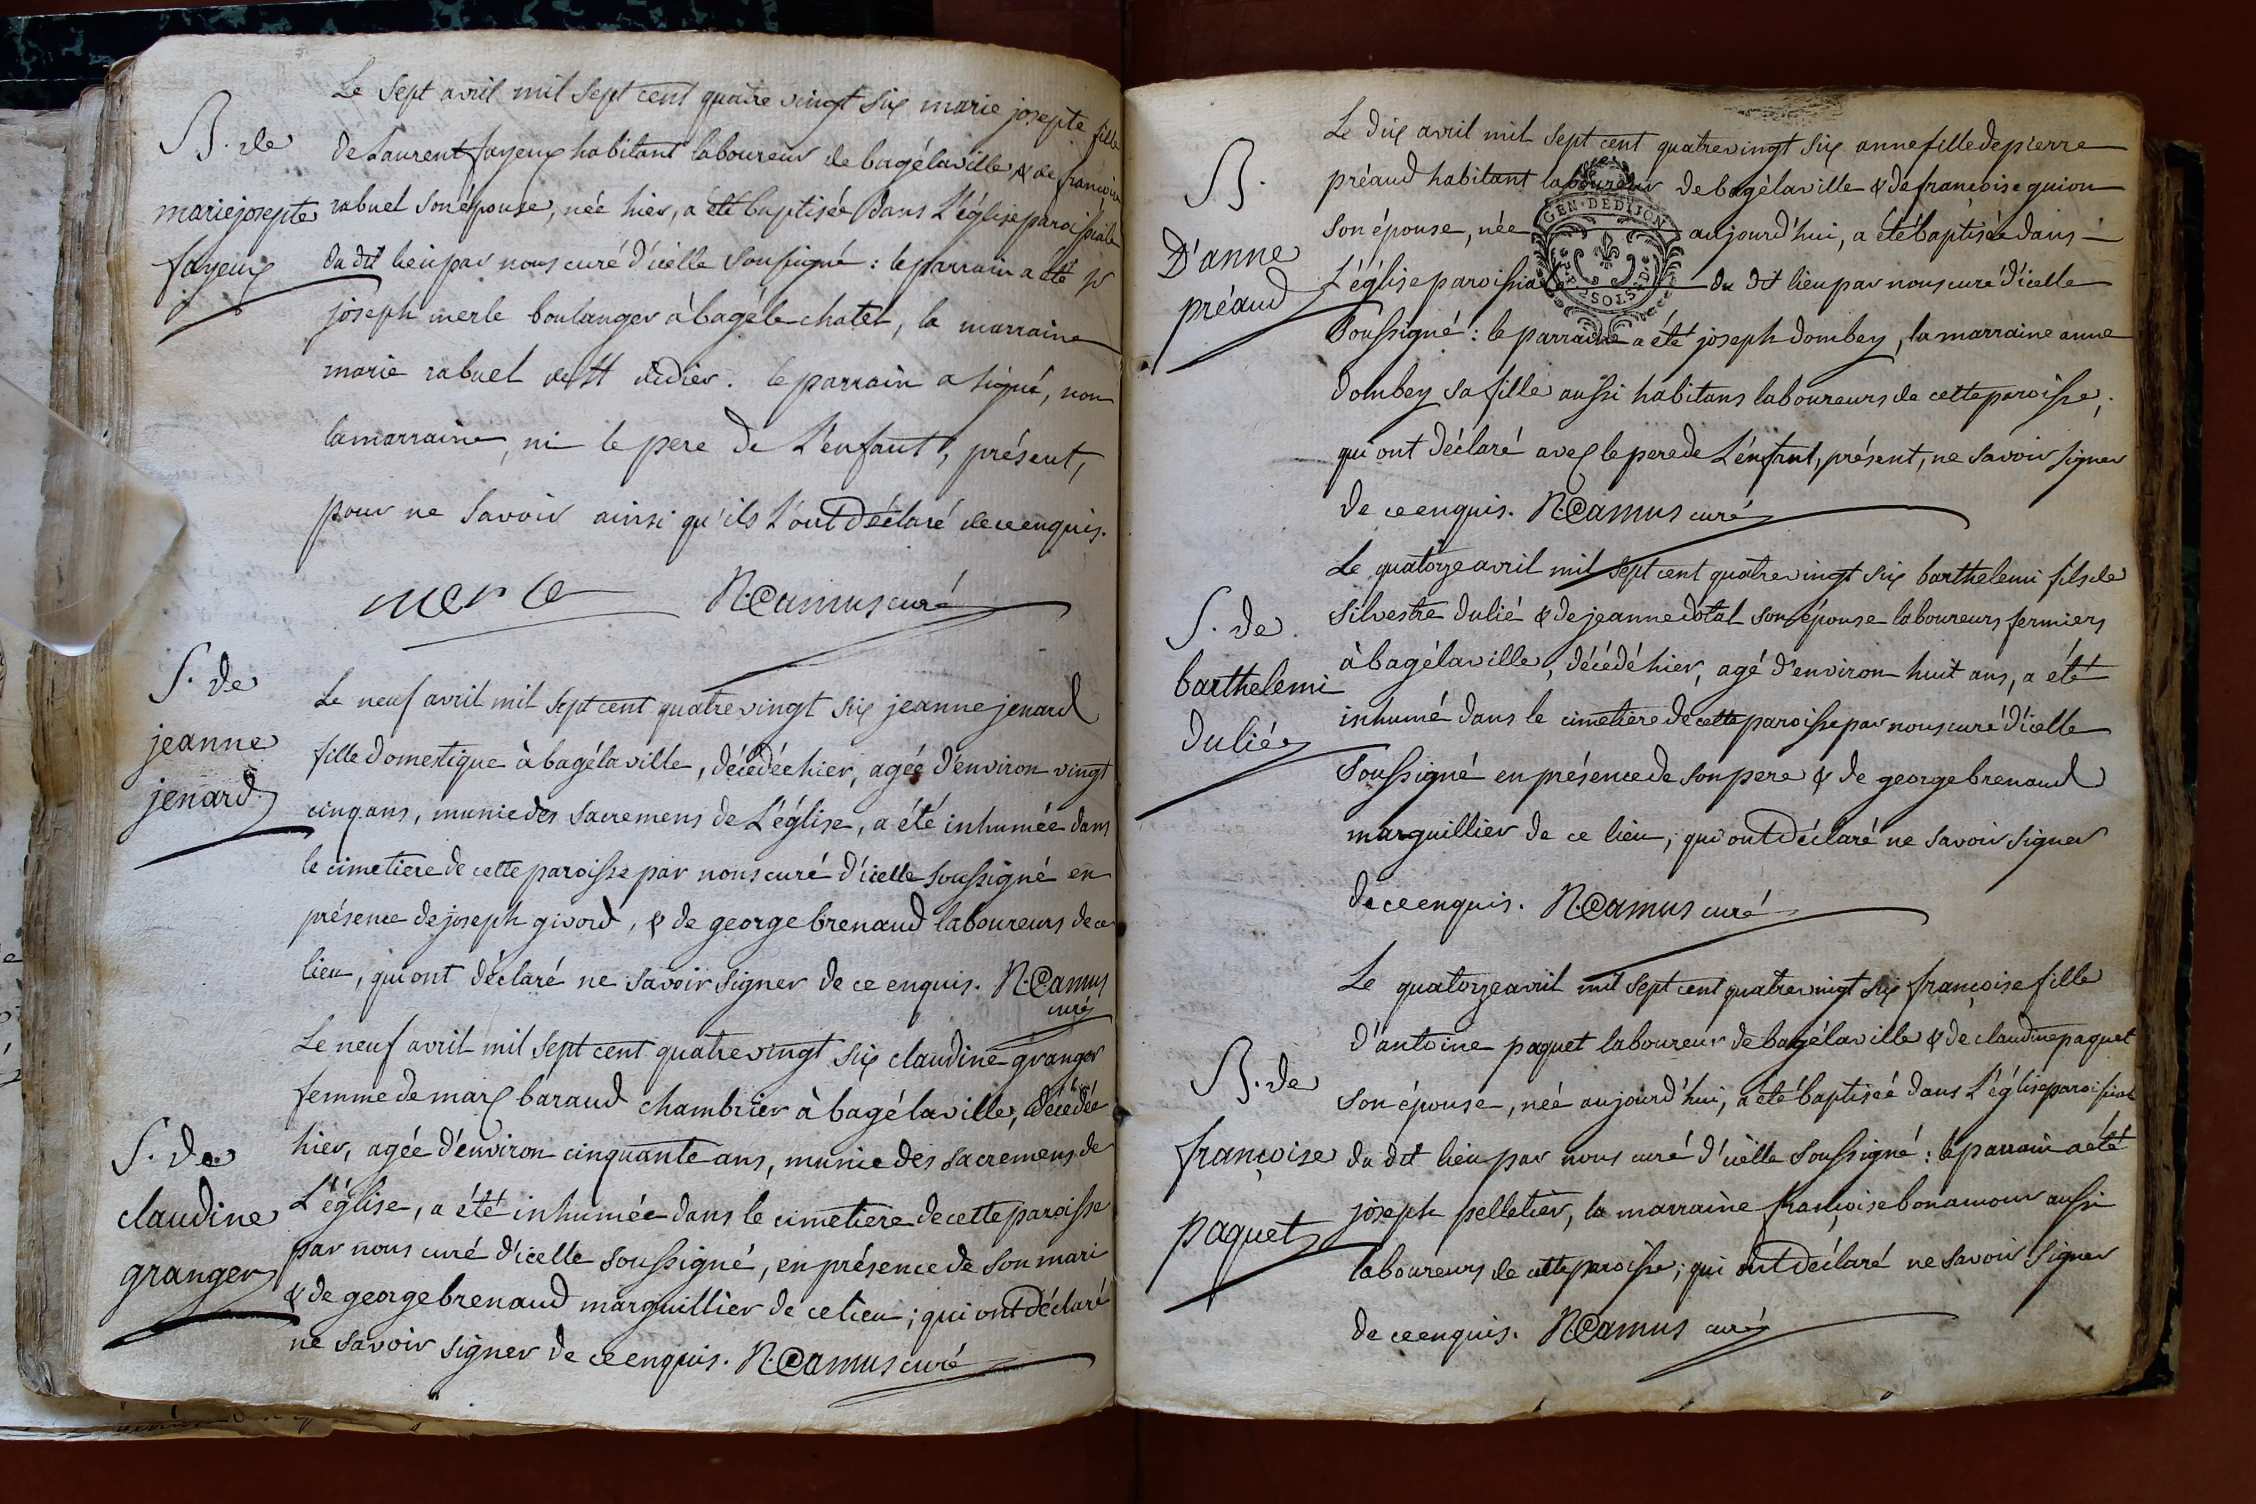 B. de
marie josepte
fayeux
Le sept avril mil sept cent quatre vingt six marie josepte fille
de Laurent fayeux habitant laboureur de bagélaville & de françoise
rabuel son épouse, née hier, a été baptisée dans L'église paroissiale
du dit lieu par nous curé d'icelle soussigné : le parrain a été
joseph merle boulanger à bagé le chatel, la marraine
marie rabuel de st didier. le parrain a signé, non
la marraine, ni le pere de L'enfant, présent,
pour ne savoir ainsi qu'ils L'ont déclaré de ce enquis.
merle N. Camus curé
S. de
jeanne
jenard
Le neuf avril mil sept cent quatre vingt six jeanne jenard
fille domestique à bagélaville, décédée hier, agée d'environ vingt
cinq ans, munie des sacremens de L'église, a été inhumée dans
le cimetiere de cette paroisse par nous curé d'icelle soussigné en
présence de joseph givord, & de george brenaud laboureurs de ce
lieu, qui ont déclaré ne savoir signer de ce enquis. N. Camus
curé
S. de
claudine
granger
Le neuf avril mil sept cent quatre vingt six claudine granger
femme de marc baraud chambrier à bagélaville, décédée
hier, agée d'environ cinquante ans, munie des sacremens de
L'église, a été inhumée dans le cimetiere de cette paroisse
par nous curé d'icelle soussigné, en présence de son mari
& de george brenaud marguillier de ce lieu ; qui ont déclaré
ne savoir signer de ce enquis. N. Camus curé
B.
D'anne
préaud
Le dix avril mil sept cent quatre vingt six anne fille de pierre
préaud habitant laboureur de bagélaville & de françoise guion
son épouse, née aujourd'hui, a été baptisée dans
L'église paroissiale du dit lieu par nous curé d'icelle
soussigné : le parrain a été joseph dombey, la marraine anne
dombey sa fille aussi habitans laboureurs de cette paroisse,
qui ont déclaré avec le pere de L'enfant, présent, ne savoir signer
de ce enquis. N. Camus curé
GEN. DE DIJON
SOLS
S. de
barthelemi
dulié
Le quatorze avril mil sept cent quatre vingt six barthelemi fils de
silvestre dulié & de jeanne dotal son épouse laboureurs fermiers
à bagélaville, décédé hier, agé d'environ huit ans, a été
inhumé dans le cimetiere de cette paroisse par nous curé d'icelle
soussigné en présence de son pere & de george brenaud
marguillier de ce lieu, qui ont déclaré ne savoir signer
de ce enquis. N. Camus curé
B. de
françoise
paquet
Le quatorze avril mil sept cent quatre vingt six françoise fille
d'antoine paquet laboureur de bagélaville & de claudine paquet
son épouse, née aujourd'hui, a été baptisée dans L'église paroissiale
du dit lieu par nous curé d'icelle soussigné : le parrain a été
joseph pelletier, la marraine françoise bonamour aussi
laboureurs de cette paroisse ; qui ont déclaré ne savoir signer
de ce enquis. N. Camus curé